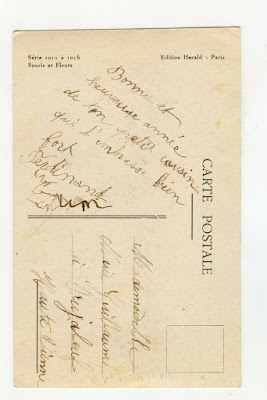 Série 1011 à 1016
Souris et Fleurs
Edition Herald - Paris
Bonne et
heureuse année
de ton petit cousin
qui t'embrasse bien
fort
Ferdinand
CARTE POSTALE
Mademoiselle
Guillaume
à
Haute Vienne